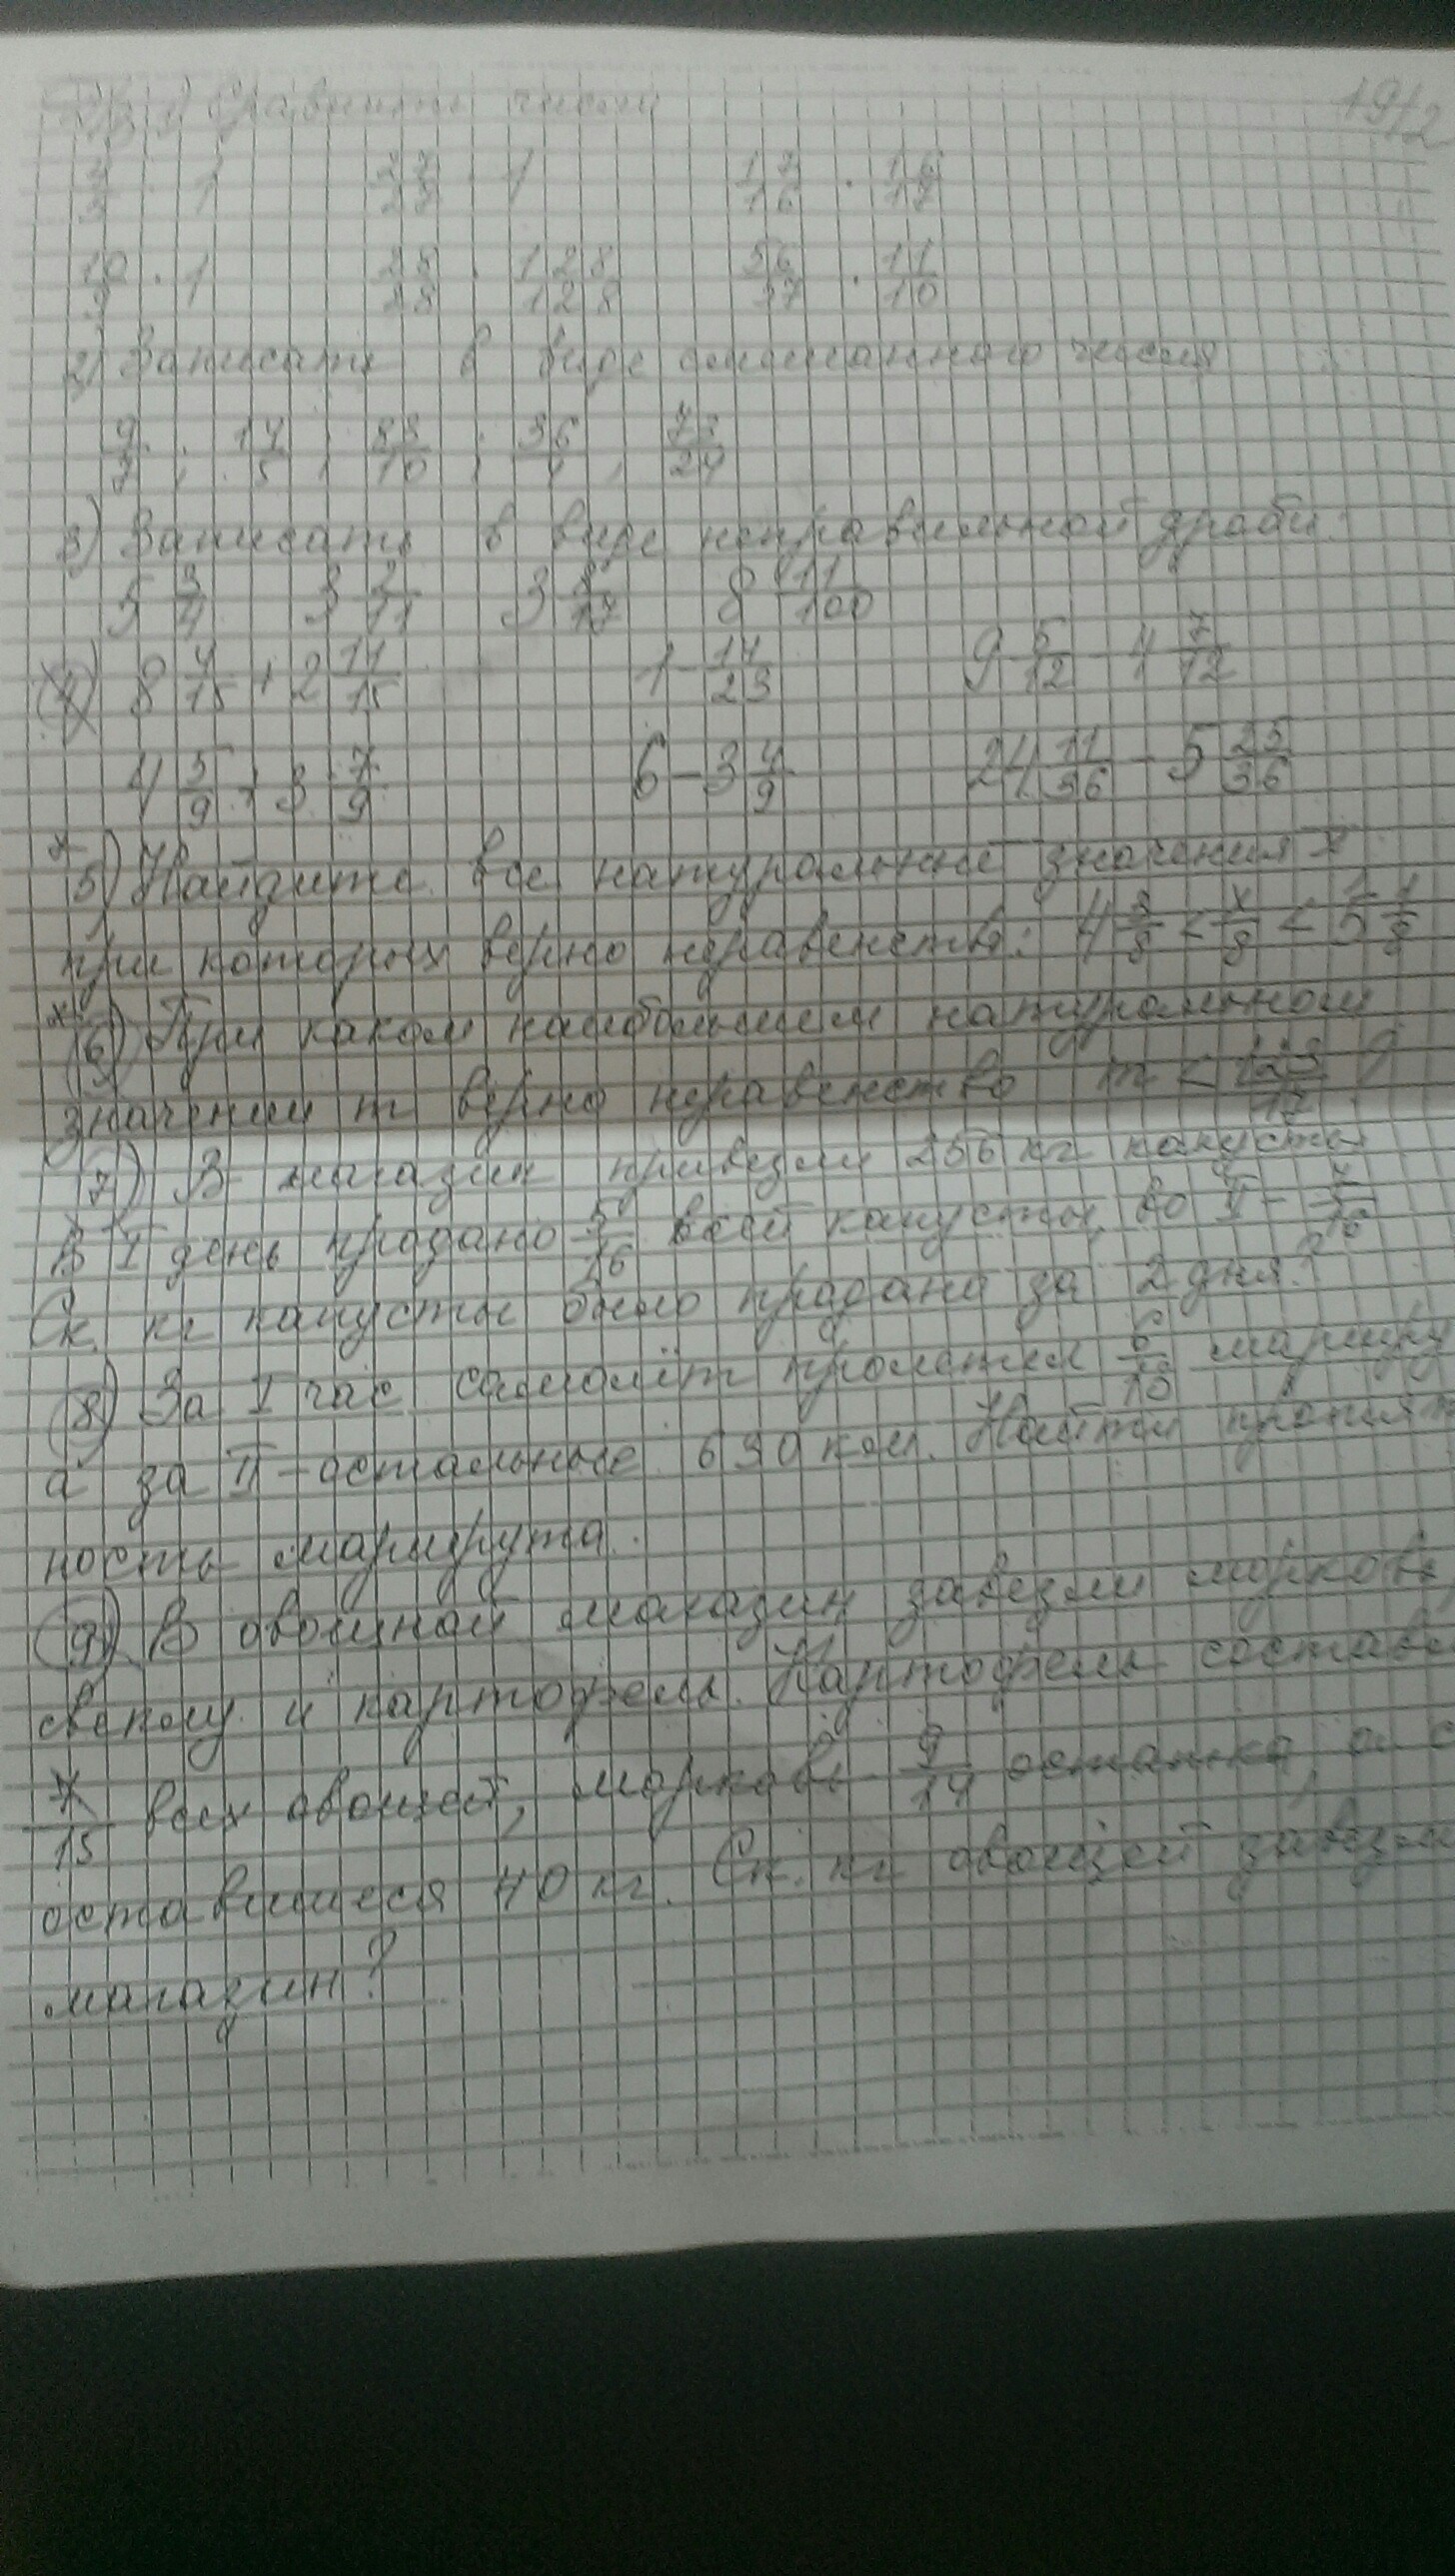 1) Сравнить числа 19/2
1 27/28 1 17/16 · 16/17
10/9 · 1 28/28 · 128/128 36/37 · 11/10
2) Записать в виде смешанного числа
9/7, 14/5, 83/10, 36/4, 73/24
3) Записать в виде неправильной дроби:
5 3/4 3 2/11 3 8/17 8 11/100
4) 8 4/15 + 2 11/15 1 - 14/23 9 5/12 - 4 7/12
4 5/9 + 3 7/9 6 - 3 4/9 24 11/36 - 5 25/36
*5) Найдите все натуральные значения x
при которых верно неравенство: 4 3/8 < x/8 < 5 1/8
*6) При каком наибольшем натуральном
значении m верно неравенство m < 123/17 ?
7) В магазин привезли 256 кг капусты
В I день продано 5/16 всей капусты, во II - 7/16
Ск. кг капусты было продано за 2 дня?
8) За I час самолёт пролетел 6/10 маршру
а за II - остальные 690 км. Найти протяж
ность маршрута.
9) В овощной магазин завезли морковь
свеклу и картофель. Картофель состав
7/15 всех овощей, морковь 9/14 остатка, а с
оставшиеся 40 кг. Ск. кг овощей завезл
магазин?